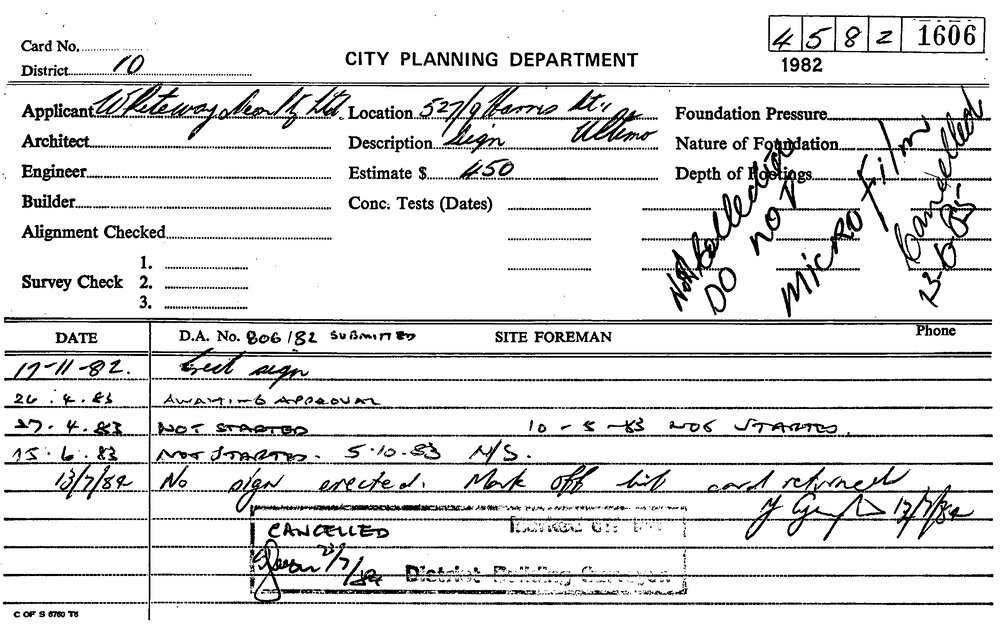 4 5 8 2 1606
1982
Card No.
District 10
CITY PLANNING DEPARTMENT
Applicant Whiteway Neon Pty Ltd. Location 527/9 Harris St., Ultimo Foundation Pressure
Architect Description Sign Nature of Foundation
Engineer Estimate $ 450 Depth of Footings
Builder Conc. Tests (Dates)
Alignment Checked
Survey Check 1.
2.
3.
Not Collected
DO NOT
MICRO Film
Cancelled
13-6-85
DATE D.A. No. 806/82 SUBMITTED SITE FOREMAN Phone
17-11-82. Erect sign
26.4.83 AWAITING APPROVAL
27.4.83 NOT STARTED 10-5-83 NOT STARTED.
15.6.83 NOT STARTED. 5.10.83 N/S.
13/7/84 No sign erected. Mark off list card returned
13/7/84
CANCELLED Marked off
23/7/84 District Building Surveyor
C OF S 6760 T6